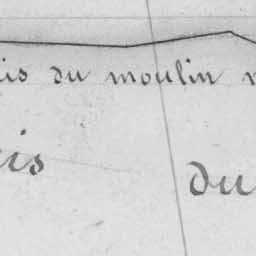 is du moulin
is du